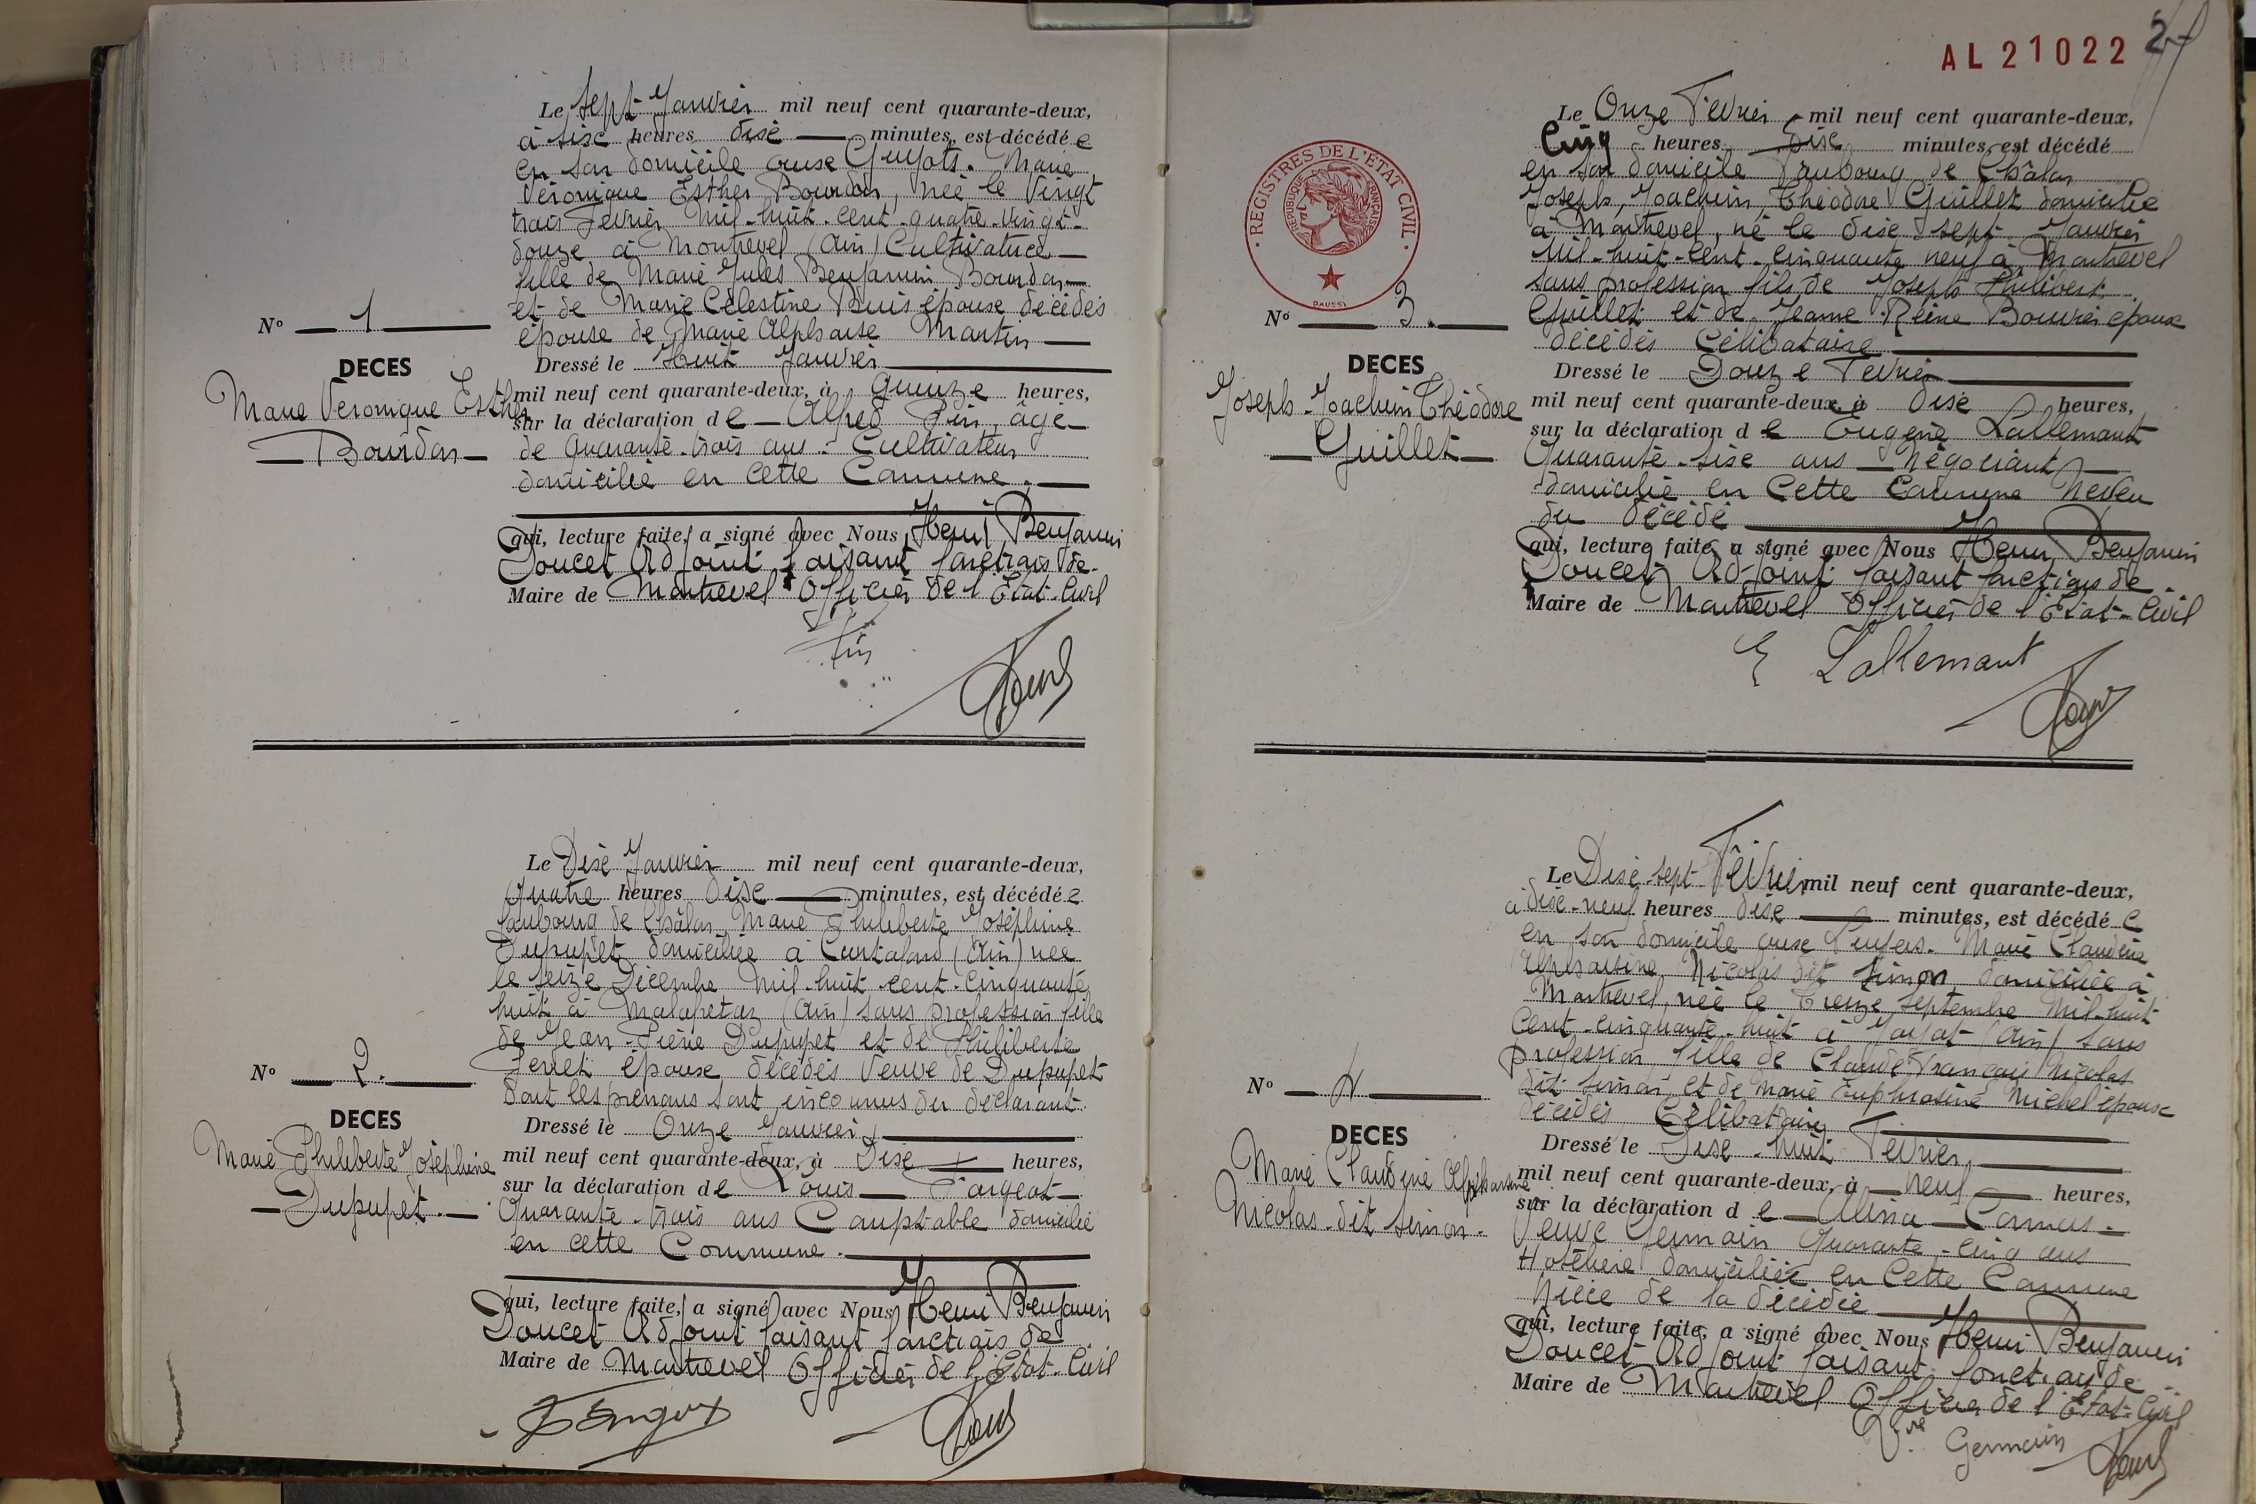 Le Sept Janvier mil neuf cent quarante-deux,
à sixe heures dixe minutes, est décédée
en son domicile auxe Guyots. Marie
Véronique Esther Bourdon, née le Vingt
trois Février Mil-huit-cent-quatre-vingt-
douze à Montrevel (Ain) Cultivatrice
fille de Marie Jules Benjamin Bourdon
et de Marie Célestine Buis épouxe décédés
N° 1
épouse de Marie Alphonse Martin
DECES
Dressé le Huit Janvier
Marie Véronique Esther
Bourdon
mil neuf cent quarante-deux, à Quinze heures,
sur la déclaration de Alfred Pin, âgé
de quarante-trois ans - Cultivateur
domicilié en cette Commune.
qui, lecture faite, a signé avec Nous Henri Benjamin
Doucet Adjoint faisant fonctions de
Maire de Montrevel Officier de l'Etat-Civil
Pin
Le Dixe Janvier mil neuf cent quarante-deux,
Quatre heures dixe minutes, est décédée
faubourg de Châlon, Marie Philiberte Joséphine
Dupupet domiciliée à Curtafond (Ain) née
le seize Décembre Mil-huit-cent-cinquante
huit à Malapetaz (Ain) sans profession fille
de Jean-Pierre Dupupet et de Philiberte
Perret épouxe décédés Veuve de Dupupet
N° 2.
dont les prénoms sont inconnus du déclarant.
DECES
Marie Philiberte Joséphine
Dupupet.
Dressé le Onze Janvier
mil neuf cent quarante-deux, à Dixe heures,
sur la déclaration de Louis Fargeot
Quarante-trois ans Comptable domicilié
en cette Commune.
qui, lecture faite, a signé avec Nous Henri Benjamin
Doucet Adjoint faisant fonctions de
Maire de Montrevel Officier de l'Etat-Civil
AL21022
2
REGISTRES DE L'ETAT CIVIL
REPUBLIQUE FRANÇAISE
DAUSSY
Le Onze Février mil neuf cent quarante-deux,
Cinq heures dixe minutes, est décédé
en son domicile Faubourg de Châlon
Joseph, Joachim, Théodore Guillet domicilié
à Montrevel, né le dixe sept Janvier
Mil-huit-cent-cinquante neuf à Montrevel
sans profession fils de Joseph Philibert
N° 3.
Guillet et de Jeanne Reine Bouvier épouxe
décédés Célibataire
DECES
Joseph-Joachim Théodore
Guillet
Dressé le Douze Février
mil neuf cent quarante-deux, à dixe heures,
sur la déclaration de Eugène Lallemant
Quarante-sixe ans négociant
domicilié en cette Commune Neveu
du décédé
qui, lecture faite, a signé avec Nous Henri Benjamin
Doucet Adjoint faisant fonctions de
Maire de Montrevel Officier de l'Etat-Civil
E Lallemant
Le Dixe-sept Février mil neuf cent quarante-deux,
à dixe-neuf heures dixe minutes, est décédée
en son domicile auxe Luyers. Marie Claudine
Alphonsine Nicolas dit Simon, domiciliée à
Montrevel, née le Treize septembre Mil-huit
Cent-cinquante-huit à Jayat (Ain) sans
profession fille de Claude François Nicolas
dit Simon et de Marie Euphrosine Michel épouxe
N° 4
décédés Célibataire
DECES
Marie Claudine Alphonsine
Nicolas-dit Simon.
Dressé le Dixe-huit Février
mil neuf cent quarante-deux, à neuf heures,
sur la déclaration de Alina Connus
Veuve Germain Quarante-cinq ans
Hotelière domiciliée en cette Commune
Nièce de la décédée
qui, lecture faite, a signé avec Nous Henri Benjamin
Doucet Adjoint faisant fonctions de
Maire de Montrevel Officier de l'Etat-Civil
Vve Germain